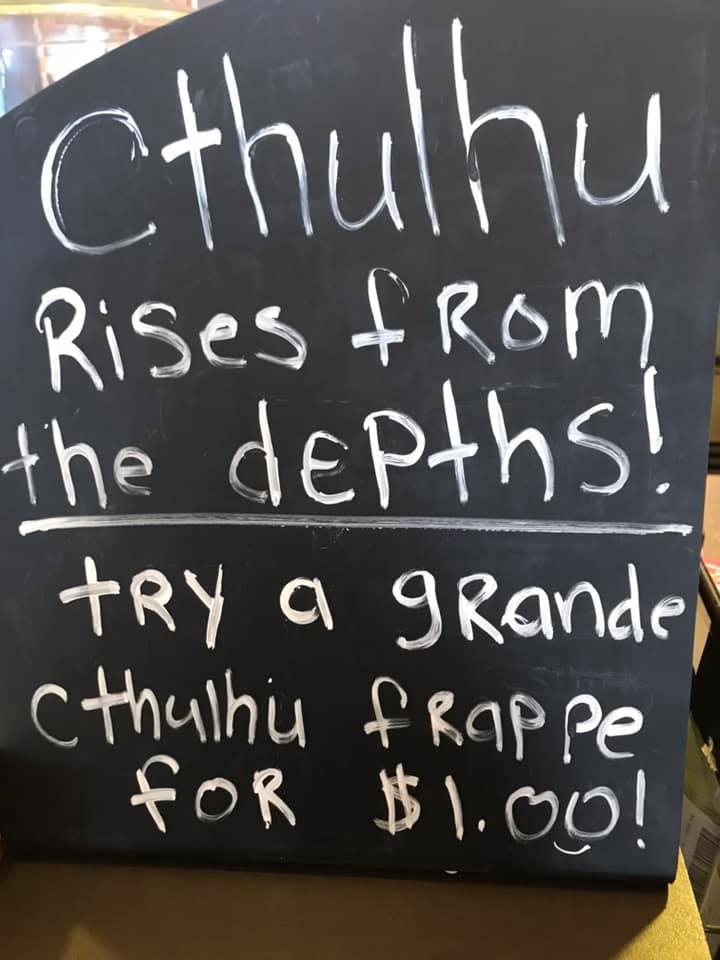 Cthulhu
Rises from
the depths!
try a grande
Cthulhu frappe
for $1.00!